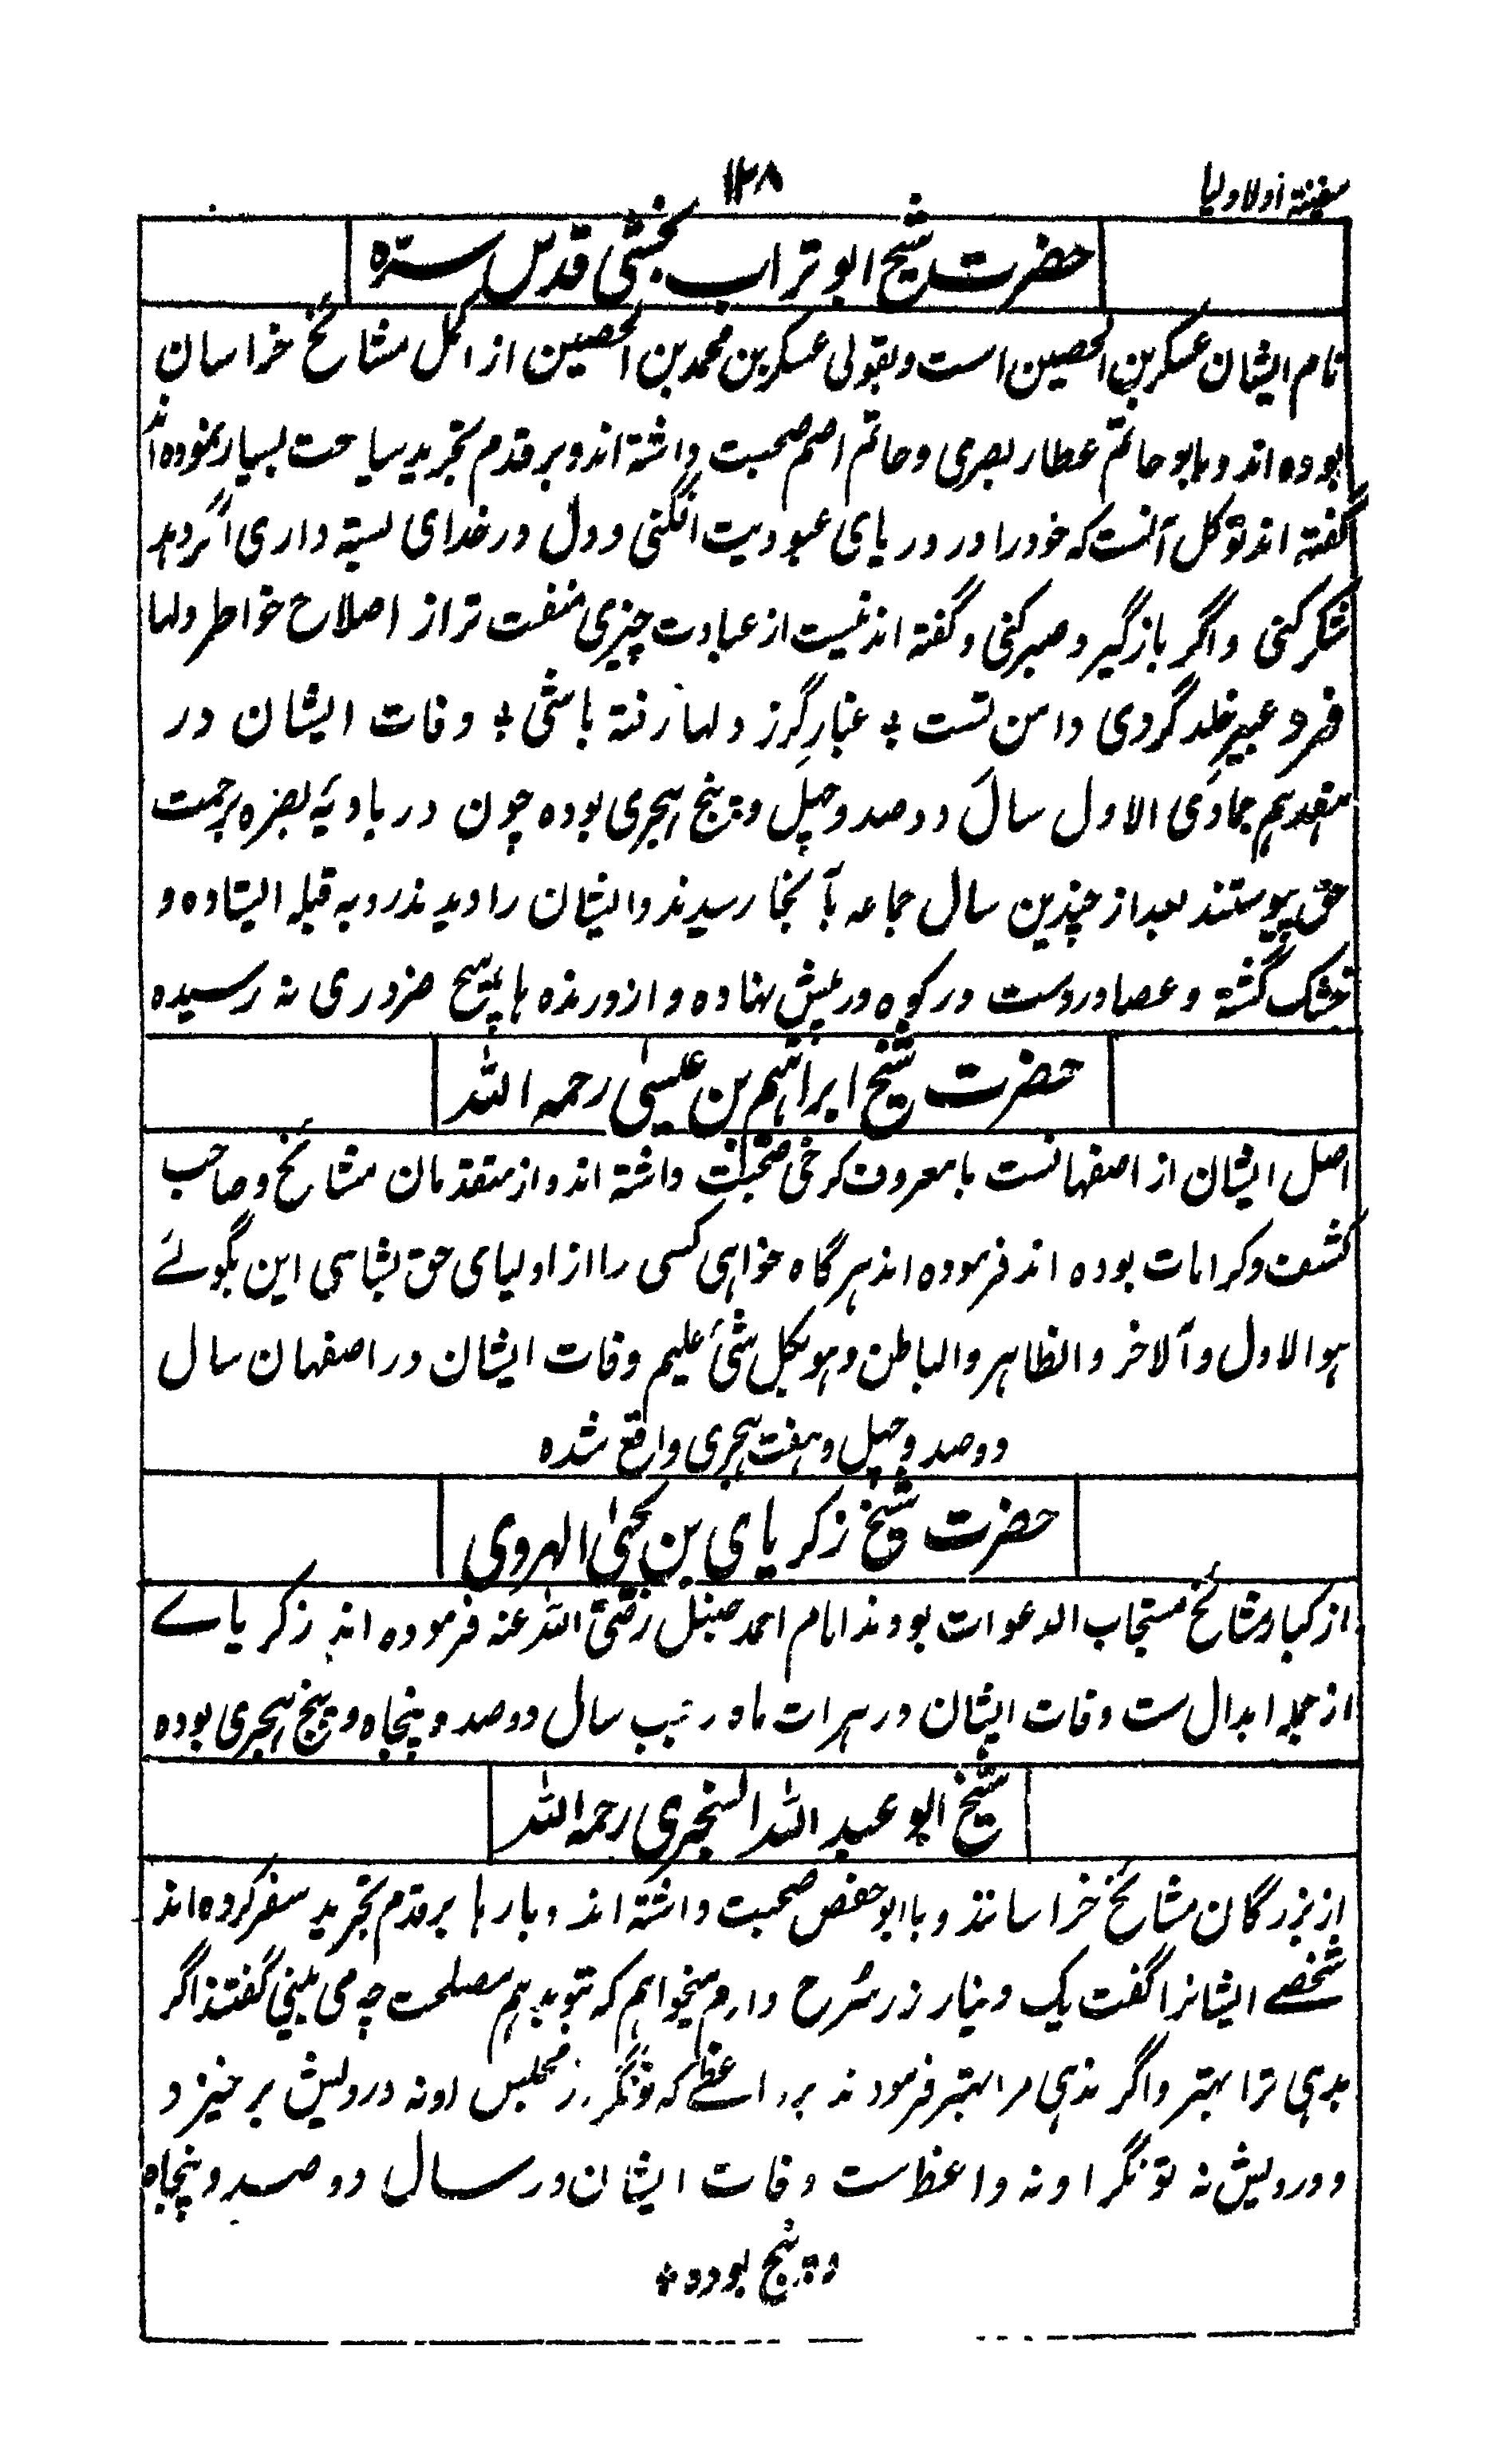 سفینۃ الاولیا
۱۲۸
حضرت شیخ ابو تراب نخشبی قدس سره
نام ایشان عسکر بن الحصین است و بقولی عسکر بن محمد بن الحصین از اکمل مشائخ خراسان
بوده اند و با بو حاتم عطار بصری و حاتم اصم صحبت داشته اند و بر قدم تجرید سیاحت بسیار نموده اند
گفته اند توکل آنست که خود را در دریای عبودیت افگنی و دل در خدای بسته داری اگر دهد
شکر کنی و اگر باز گیرد صبر کنی و گفته اند نیست از عبادت چیزی منفعت تر از اصلاح خواطر دلها
فرد عبیر خلد گردی دامن تست ؛ غبار گرز دلها رفته باشی ؛ وفات ایشان در
هفدهم جمادی الاول سال دو صد و چهل و پنج هجری بوده چون در بادیه بصره برحمت
حق پیوستند بعد از چندین سال جماعه بآنجا رسیدند و ایشان را دیدند رو به قبله ایستاده و
خشک گشته و عصا در دست و رکوه در پیش نهاده و از درنده ها هیچ ضرری نه رسیده
حضرت شیخ ابراهیم بن عیسیٰ رحمه الله
اصل ایشان از اصفهانست با معروف کرخی صحبت داشته اند و از متقدمان مشائخ و صاحب
کشف و کرامات بوده اند فرموده اند هر گاه خواهی کسی را از اولیای حق بشناسی این بگوئے
هو الاول و آلاخر و الظاهر و الباطن و هو بکل شئ علیم وفات ایشان در اصفهان سال
دو صد و چهل و هفت هجری واقع شده
حضرت شیخ زکریای بن یحییٰ الهروی
از کبار مشائخ مستجاب الدعوات بودند امام احمد حنبل رضی الله عنه فرموده اند زکریاے
از جمله ابدال ست وفات ایشان در هرات ماه رجب سال دو صد و پنجاه و پنج هجری بوده
شیخ ابو عبد الله السنجری رحمه الله
از بزرگان مشائخ خراسانند و با ابو حفص صحبت داشته اند و بارها بر قدم تجرید سفر کرده اند
شخصے ایشانرا گفت یک دینار زر سُرح دارم میخواهم که بتو بدهم مصلحت چه می بینی گفتند اگر
بدهی ترا بهتر و اگر ندهی مرا بهتر فرمودند هر واعظے که توانگر از مجلس او نه درویش بر خیزد
و درویش نه توانگر او نه واعظ است وفات ایشان در سال دو صد و پنجاه
و پنج بوده ٭